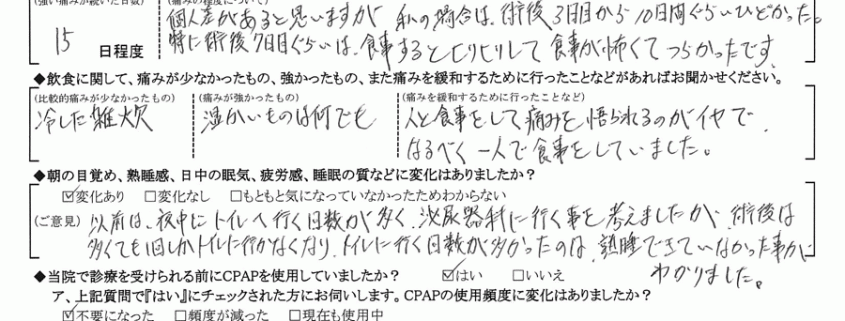 (強い痛みが続いた日数) (痛みの程度について)
個人差があると思いますが 私の場合は、術後3日目から10日間ぐらいひどかった。
15 日程度 特に術後7日目ぐらいは、食事するとヒリヒリして食事が怖くてつらかったです
◆飲食に関して、痛みが少なかったもの、強かったもの、また痛みを緩和するために行ったことなどがあればお聞かせください。
(比較的痛みが少なかったもの) (痛みが強かったもの) (痛みを緩和するために行ったことなど)
冷した雑炊 温かいものは何でも 人と食事をして痛みを悟られるのがイヤで、
なるべく一人で食事をしていました。
◆朝の目覚め、熟睡感、日中の眠気、疲労感、睡眠の質などに変化はありましたか?
☑変化あり □変化なし □もともと気になっていなかったためわからない
(ご意見) 以前は、夜中にトイレへ行く回数が多く、泌尿器科に行く事を考えましたが、術後は
多くても1回しかトイレに行かなくなり、トイレに行く回数が多かったのは、熟睡できていなかった事が
わかりました。
◆当院で診療を受けられる前にCPAPを使用していましたか? ☑はい □いいえ
ア、上記質問で『はい』にチェックされた方にお伺いします。CPAPの使用頻度に変化はありましたか?
☑不要になった □頻度が減った □現在も使用中